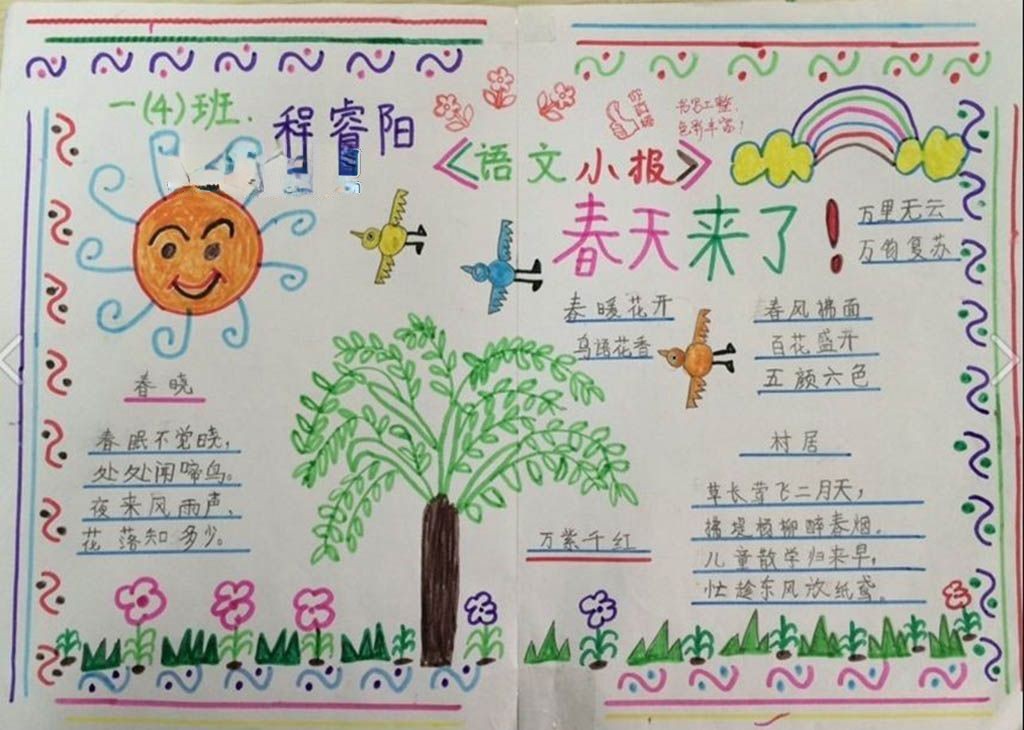 一(4)班.
程睿阳
你真棒
书写工整,
色彩丰富!
《语文小报》
春天来了!
万里无云
万物复苏
春暖花开
鸟语花香
春风拂面
百花盛开
五颜六色
春晓
春眠不觉晓,
处处闻啼鸟。
夜来风雨声,
花落知多少。
万紫千红
村居
草长莺飞二月天,
拂堤杨柳醉春烟。
儿童散学归来早,
忙趁东风放纸鸢。